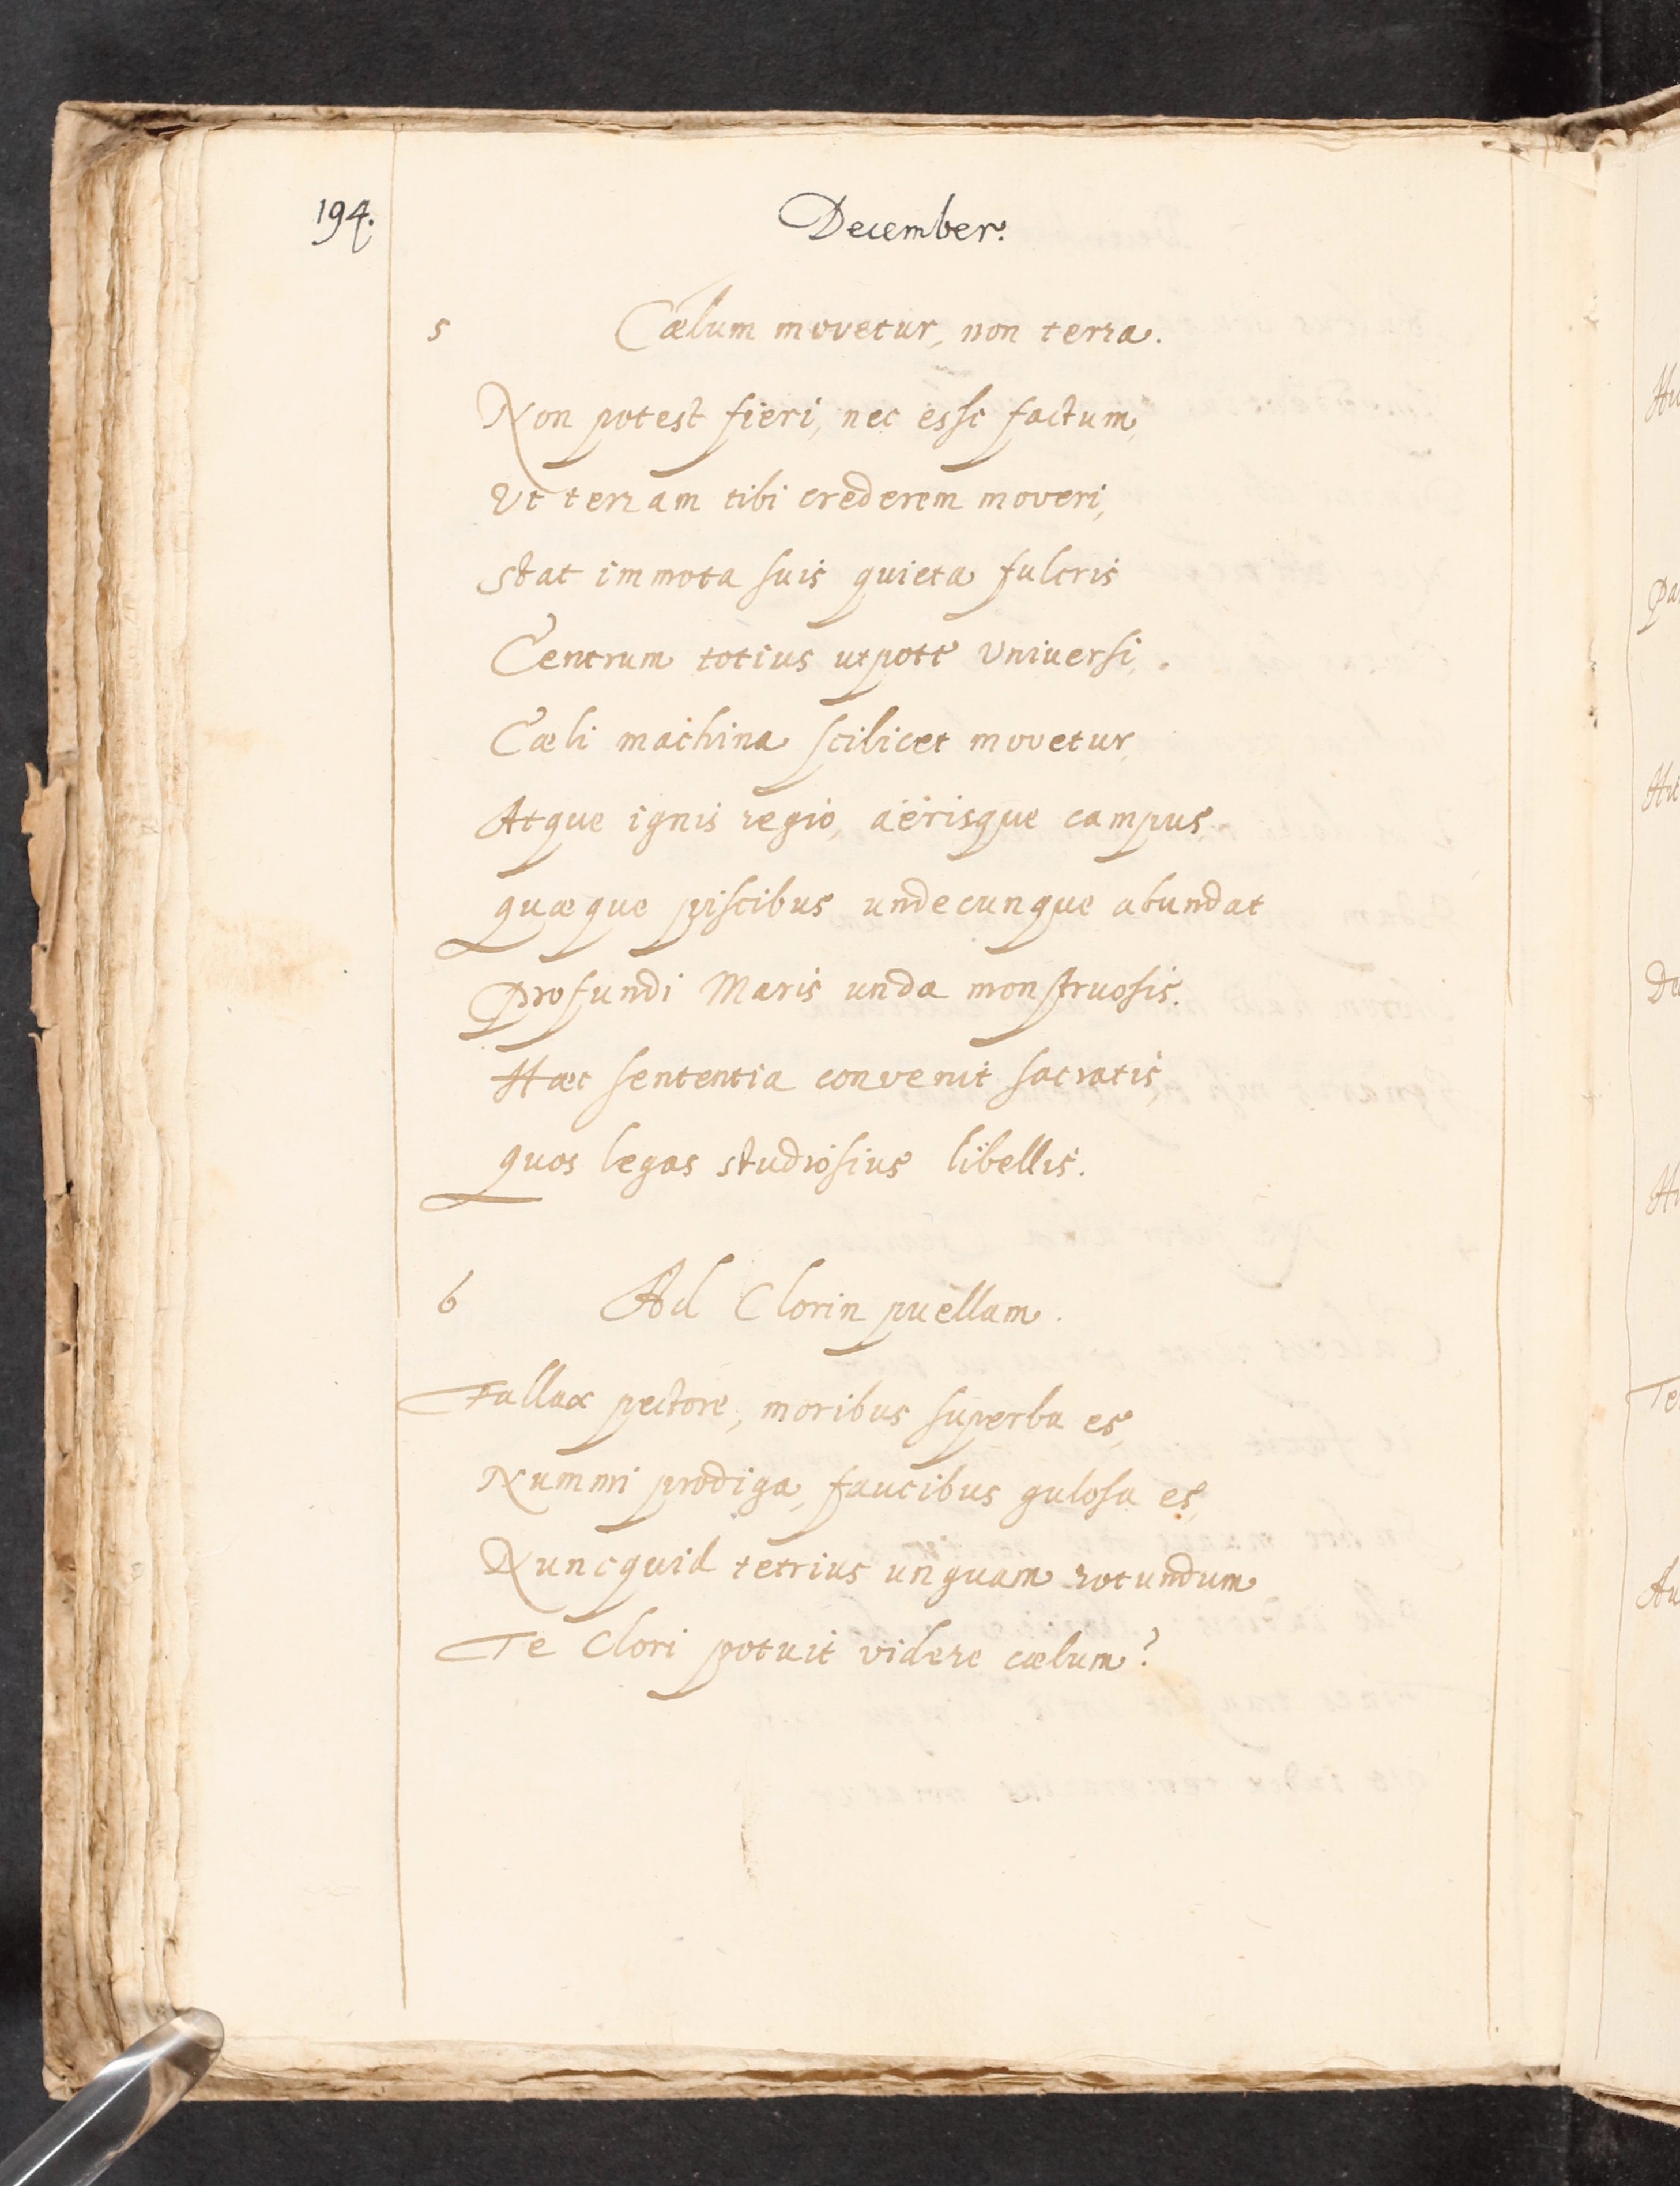 194.
December.
5 Cælum movetur, non terra.
Non potest fieri, nec esse factum,
Ut terram tibi crederem moveri,
Stat immota suis quieta fulcris
Centrum totius utpote Universi,.
Cæli machina scilicet movetur,
Atque ignis regio, aërisque campus,
quæque piscibus undecunque abundat
Profundi Maris unda monstruosis.
Hæc sententia convenit sacratis,
quos legas studiosius libellis.
6 Ad Clorin puellam.
Fallax pectore, moribus superba es,
Nummi prodiga, faucibus gulosa es,
Nuncquid tetrius unquam rotundum
Te Clori potuit videre cælum?